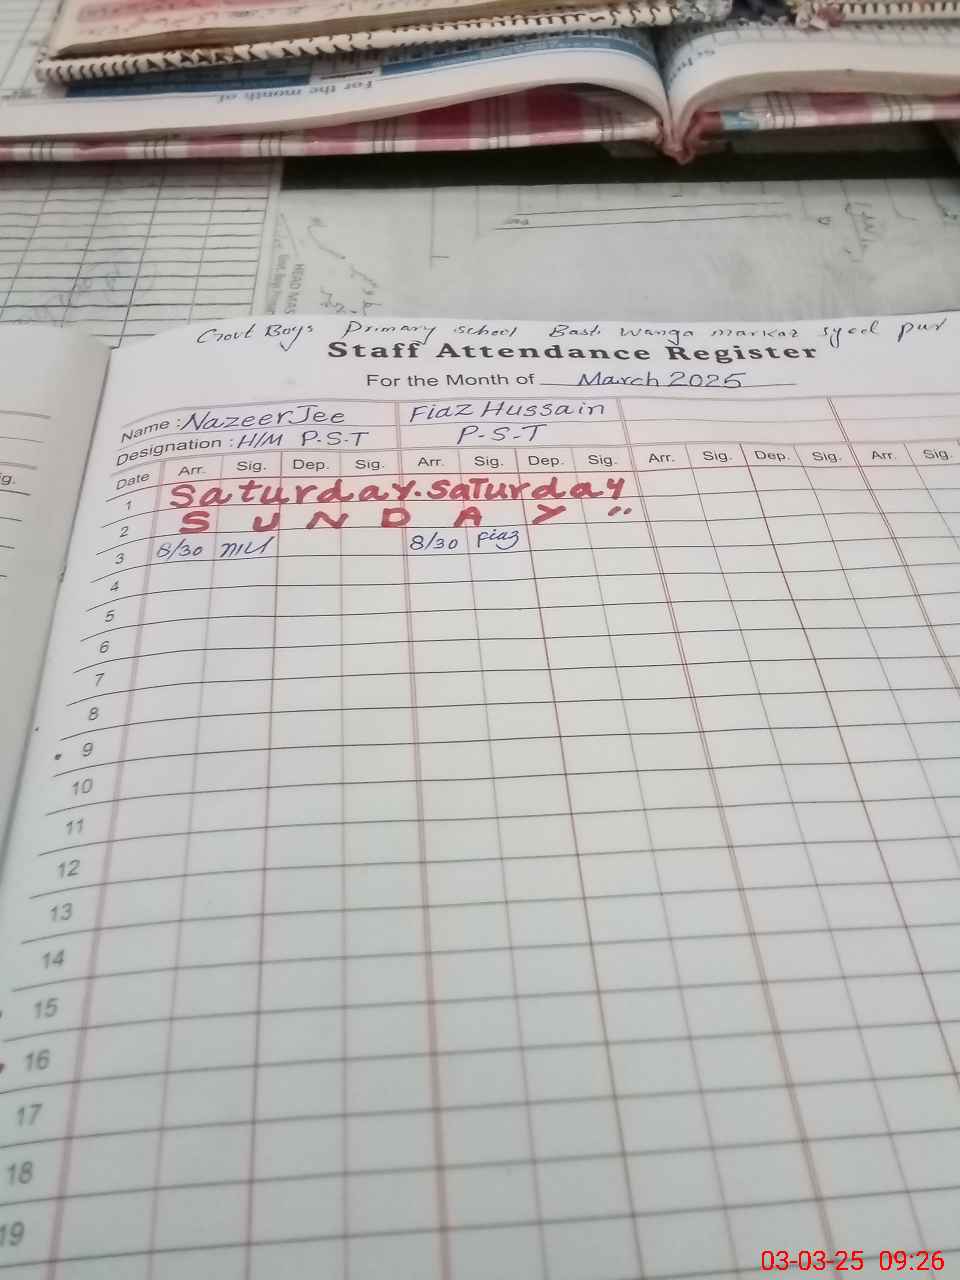 For the month of
HEAD MAS
Govt Boys Primary school Basti Wanga markaz syed pur
Staff Attendance Register
For the Month of March 2025
Name : Nazeer Jee Fiaz Hussain
Designation : H/M P.S.T P.S.T
Date Arr. Sig. Dep. Sig. Arr. Sig. Dep. Sig. Arr. Sig. Dep. Sig. Arr. Sig.
1 Saturday. Saturday
2 S U N D A Y "
3 8/30 8/30 Fiaz
4
5
6
7
8
9
10
11
12
13
14
15
16
17
18
19
03-03-25 09:26